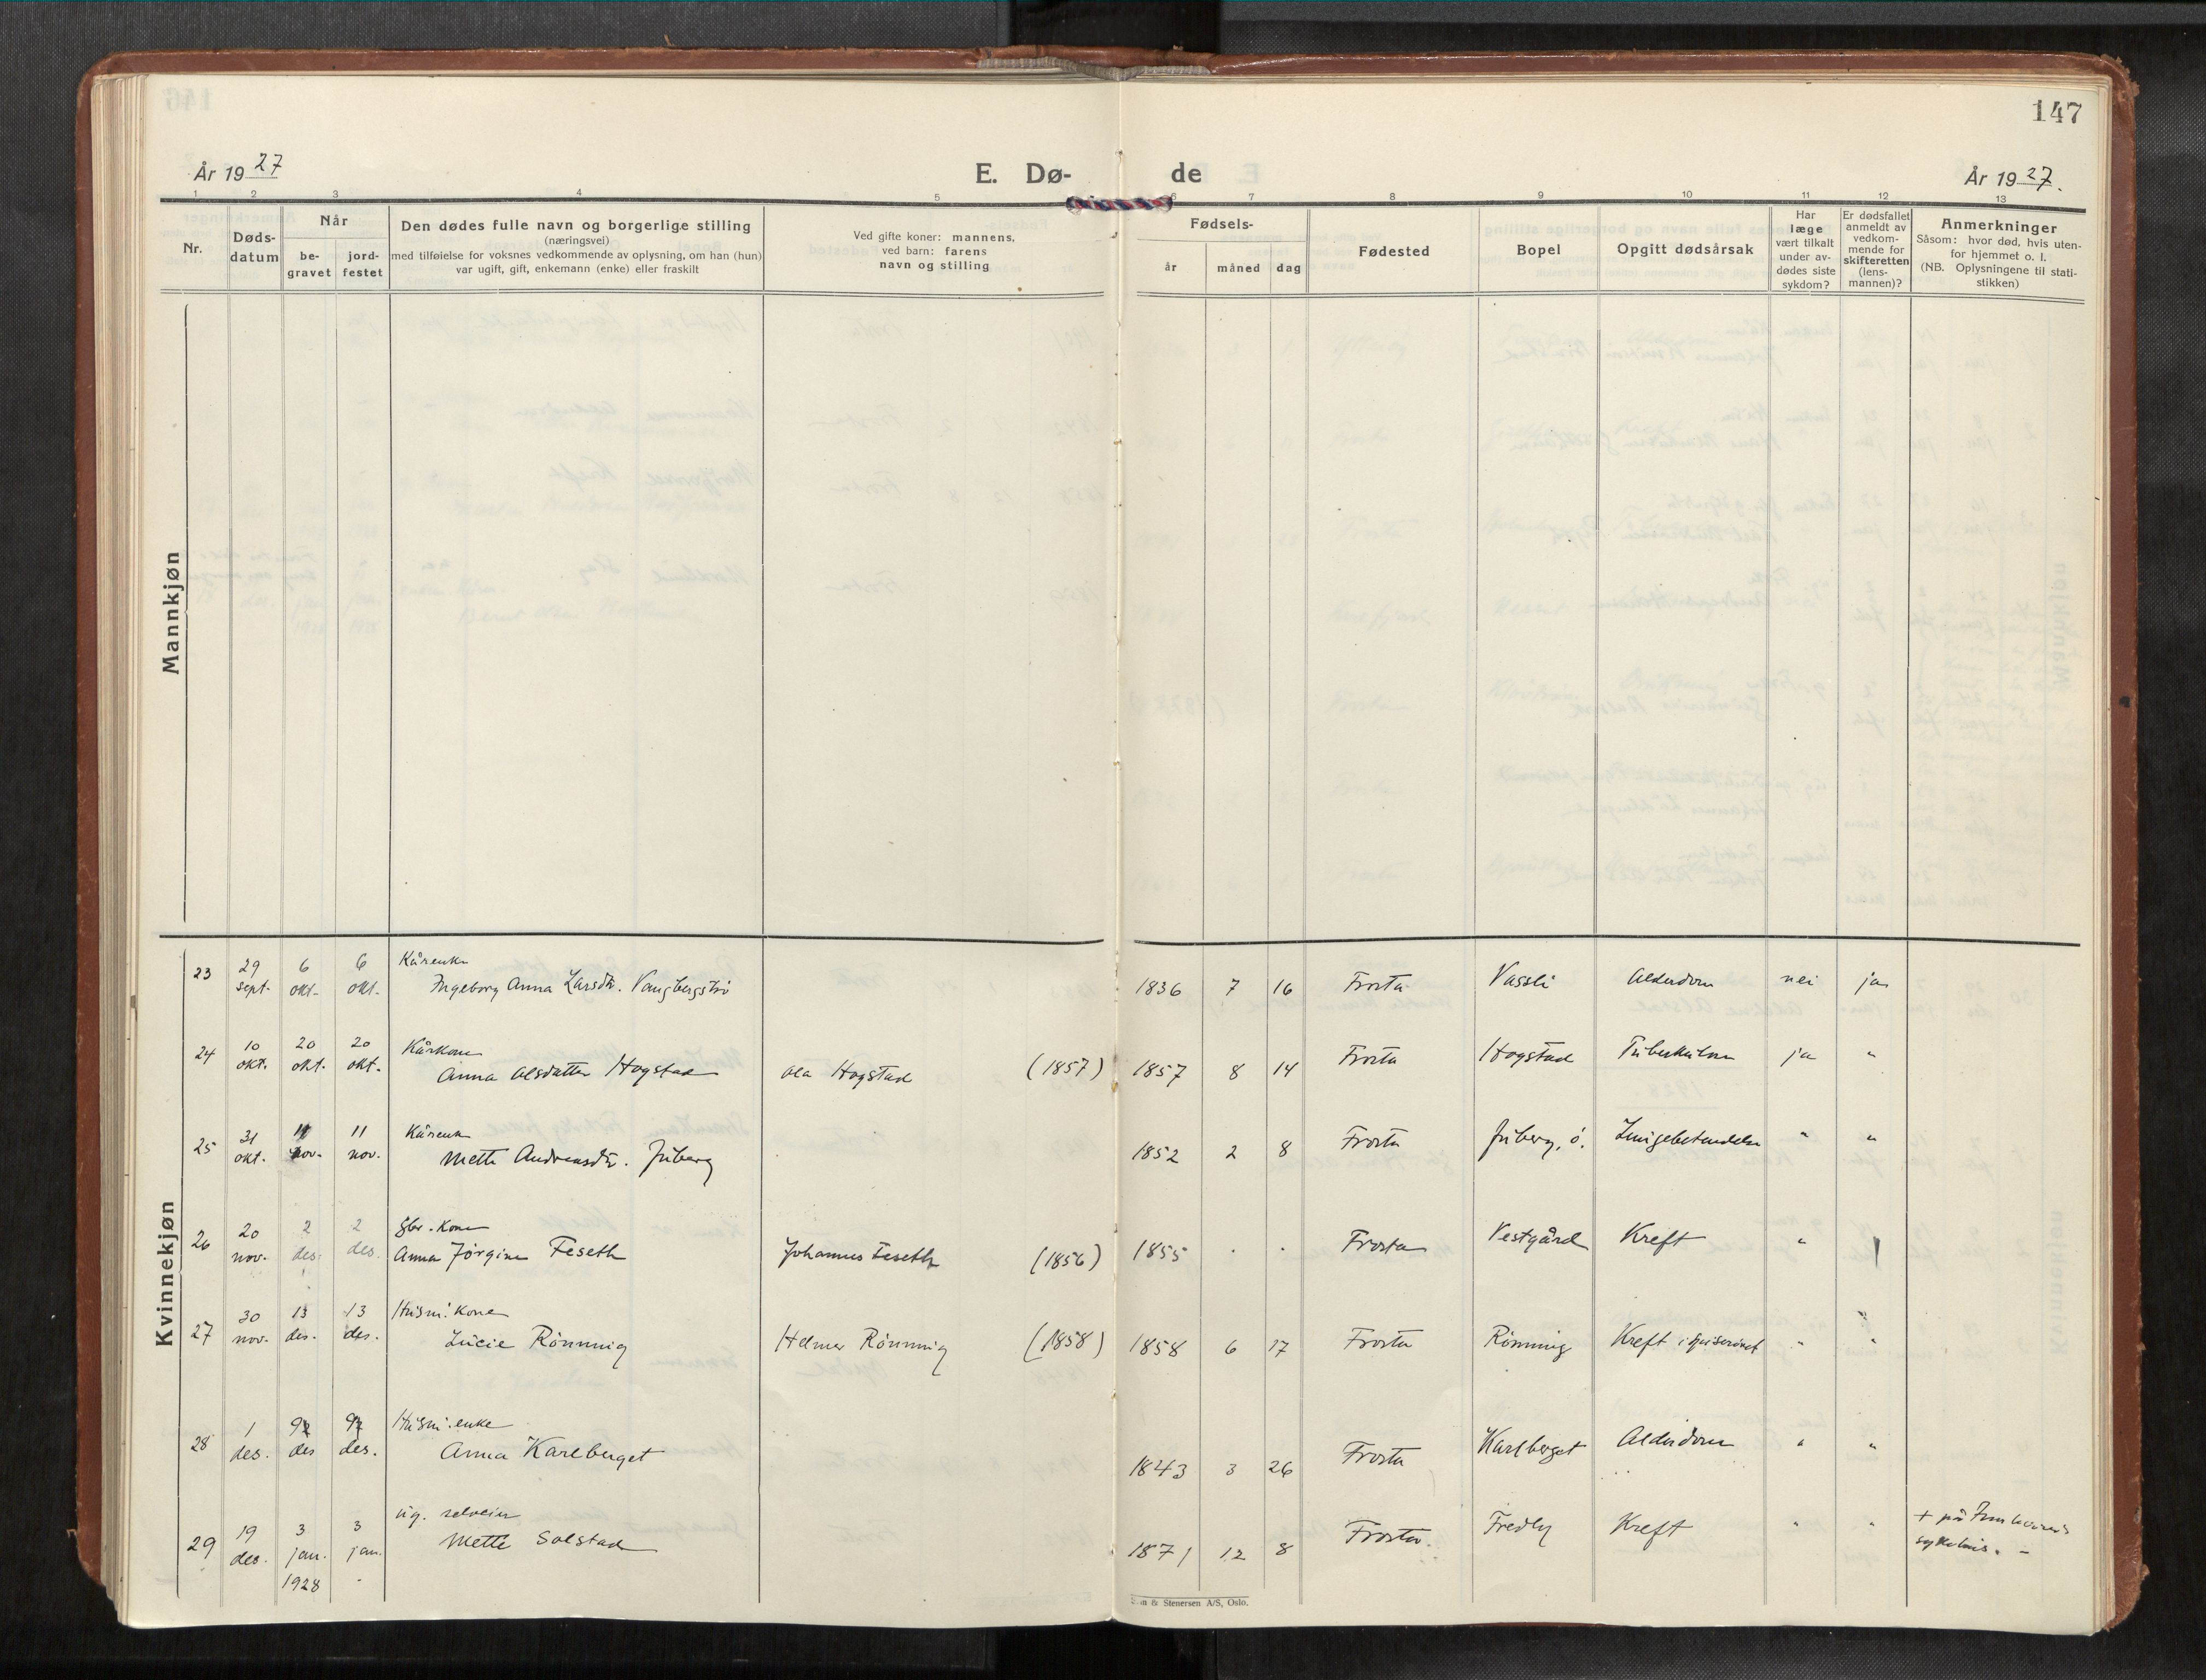 147
År 19 27
E. Dø-
de
År 19 27.
1 2 3 4 5 6 7 8 9 10 11 12 13
Nr.
Døds-
datum
Når
be-
gravet
jord-
festet
Den dødes fulle navn og borgerlige stilling
(næringsvei)
med tilføielse for voksnes vedkommende av oplysning, om han (hun)
var ugift, gift, enkemann (enke) eller fraskilt
Ved gifte koner: mannens,
ved barn: farens
navn og stilling
Fødsels-
år måned dag
Fødested
Bopel
Opgitt dødsårsak
Har
læge
vært tilkalt
under av-
dødes siste
sykdom?
Er dødsfallet
anmeldt av
vedkom-
mende for
skifteretten
(lens-
mannen)?
Anmerkninger
Såsom: hvor død, hvis uten-
for hjemmet o. l.
(NB. Oplysningene til stati-
stikken)
Mannkjøn
Kvinnekjøn
23 29 6 6 Kårenke
sept. okt. okt. Ingeborg Anna Larsdtr. Vangbergstrø 1836 7 16 Frosta Vassli Alderdom nei ja
24 10 20 20 Kårkone
okt. okt. okt. Anna Olsdatter Hogstad Ola Hogstad (1857) 1857 8 14 Frosta Hogstad Tuberkulose ja "
25 31 11 11 Kårenke
okt. nov. nov. Mette Andreasdtr. Juberg 1852 2 8 Frosta Juberg, ø. Lungebetendelse " "
26 20 2 2 gbr. kone
nov. des. des. Anna Jørgine Feseth Johannes Feseth (1856) 1855 . . Frosta Vestgård Kreft "
27 30 13 13 Husm. kone
nov. des. des. Lucie Rønning Helmer Rønning (1858) 1858 6 17 Frosta Rønning Kreft i spiserøret " "
28 1 9 9 Husm. enke
des. des des. Anna Karlberget 1843 3 26 Frosta Karlberget Alderdom " "
29 19 3 3 ug. selveier
des. jan. jan. Mette Solstad 1871 12 8 Frosta. Fredly Kreft " " + på
1928 " sykehus. -
& Stenersen A/S, Oslo.